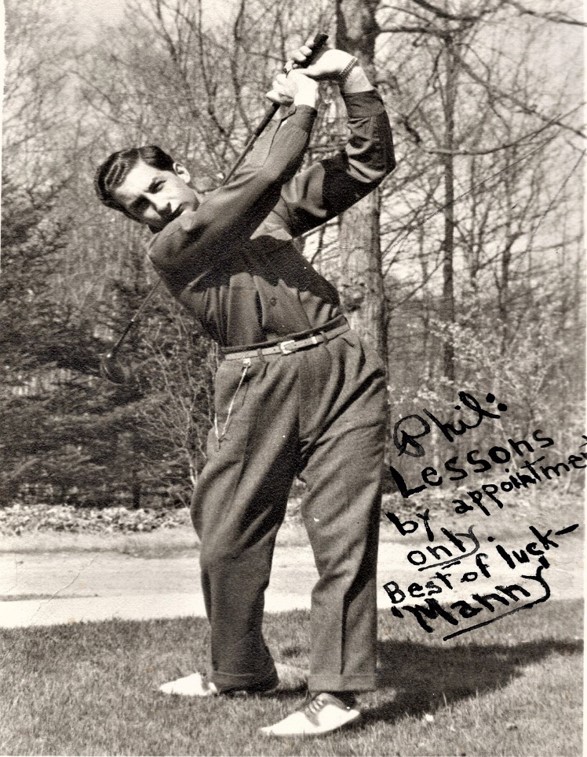 Phil:
Lessons
by appointmen
only.
Best of luck—
"Manny"